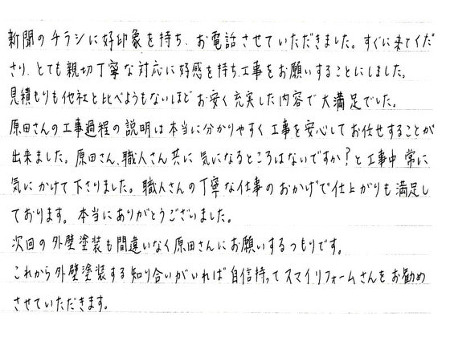 新聞のチラシに好印象を持ち、お電話させていただきました。すぐに来てくだ
さり、とても親切丁寧な対応に好感を持ち工事をお願いすることにしました。
見積もりも他社と比べようもないほどお安く充実した内容で大満足でした。
原田さんの工事過程の説明は本当に分かりやすく工事を安心してお任せすることが
出来ました。原田さん、職人さん共に気になるところはないですか？と工事中常に
気にかけて下さりました。職人さんの丁寧な仕事のおかげで仕上がりも満足し
ております。本当にありがとうございました。
次回の外壁塗装も間違いなく原田さんにお願いするつもりです。
これから外壁塗装する知り合いがいれば自信持ってスマイリフォームさんをお勧め
させていただきます。